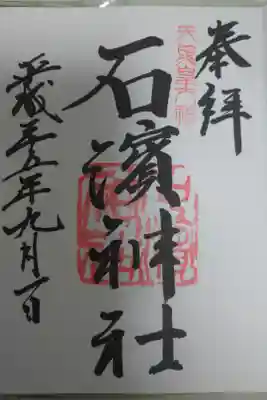 奉拝
石濱神社
平成廿五年九月一日